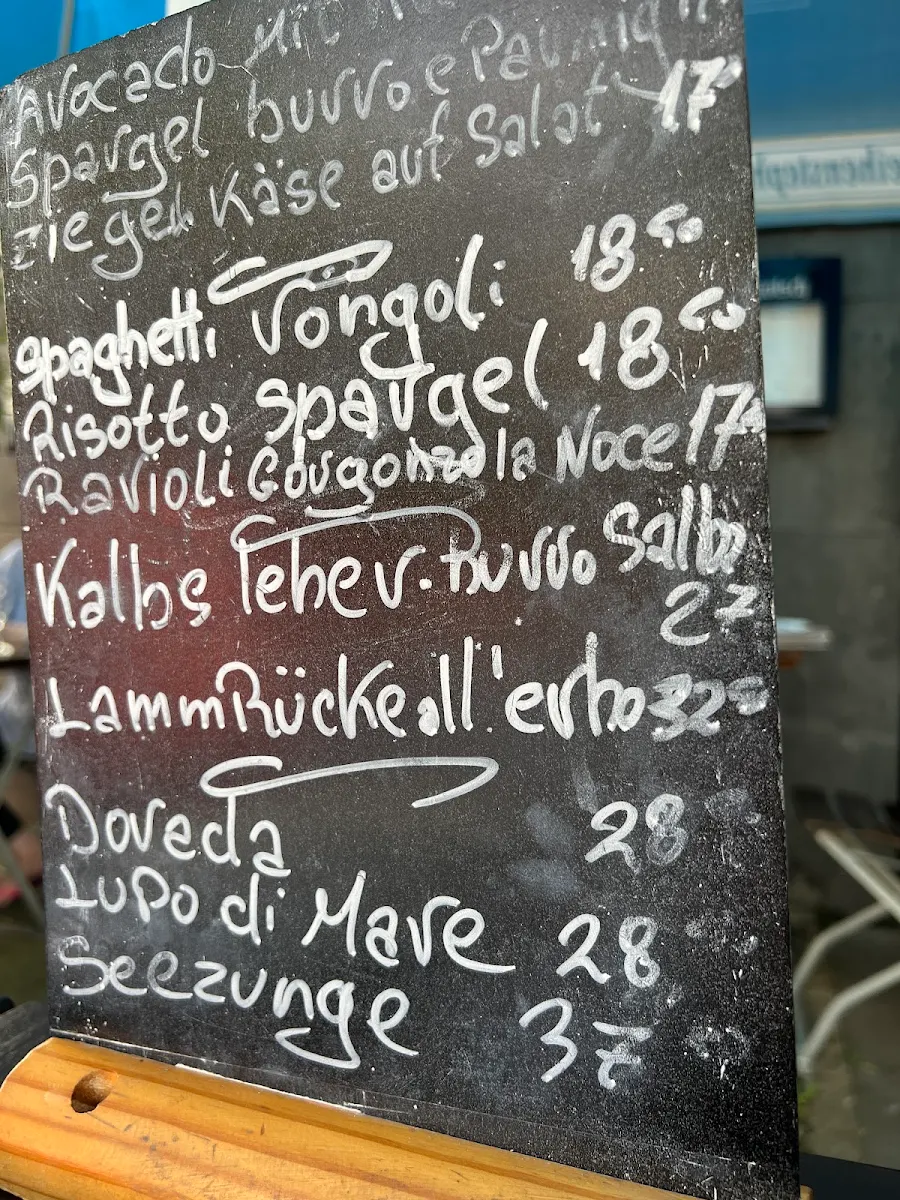 Avocado mit
Spargel burro e Parmig
Ziegen Käse auf Salat 17
Spaghetti Vongoli 18 50
Risotto Spargel 18 50
Ravioli Gorgonzola Noce 17
Kalbs leber. Burro Salbo
27
LammRücke all'erbo 32
Doveda 28
Lupo di Mare 28
Seezunge 37